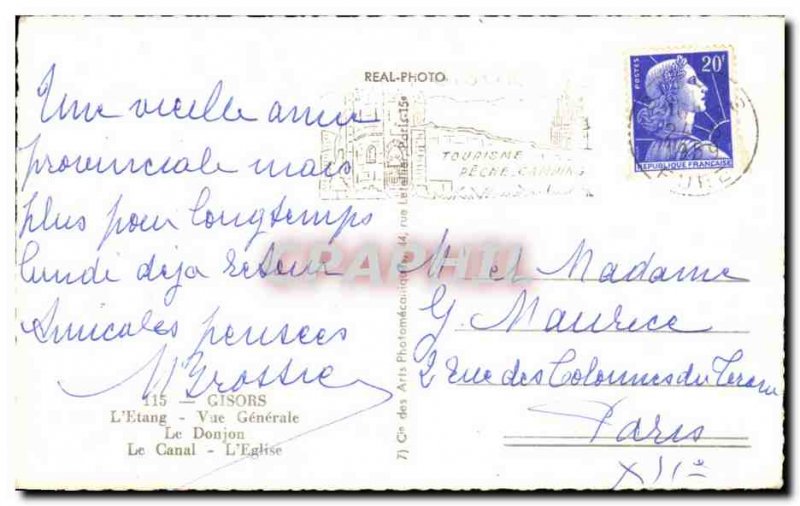 REAL-PHOTO
Une vieille amie
provinciale mais
plus pour longtemps
lundi déja retour
Amicales pensées
115 — GISORS
L'Etang - Vue Générale
Le Donjon
Le Canal - L'Eglise
7) Cie des Arts Photomécaniques, 44, rue Letellier, Paris-15e
TOURISME
PÊCHE-CAMPING
POSTES
20F
REPUBLIQUE FRANÇAISE
EURE
CPAPHIL
M et Madame
G. Maurice
2 Rue des Colonnes du Trone
Paris
XIIe